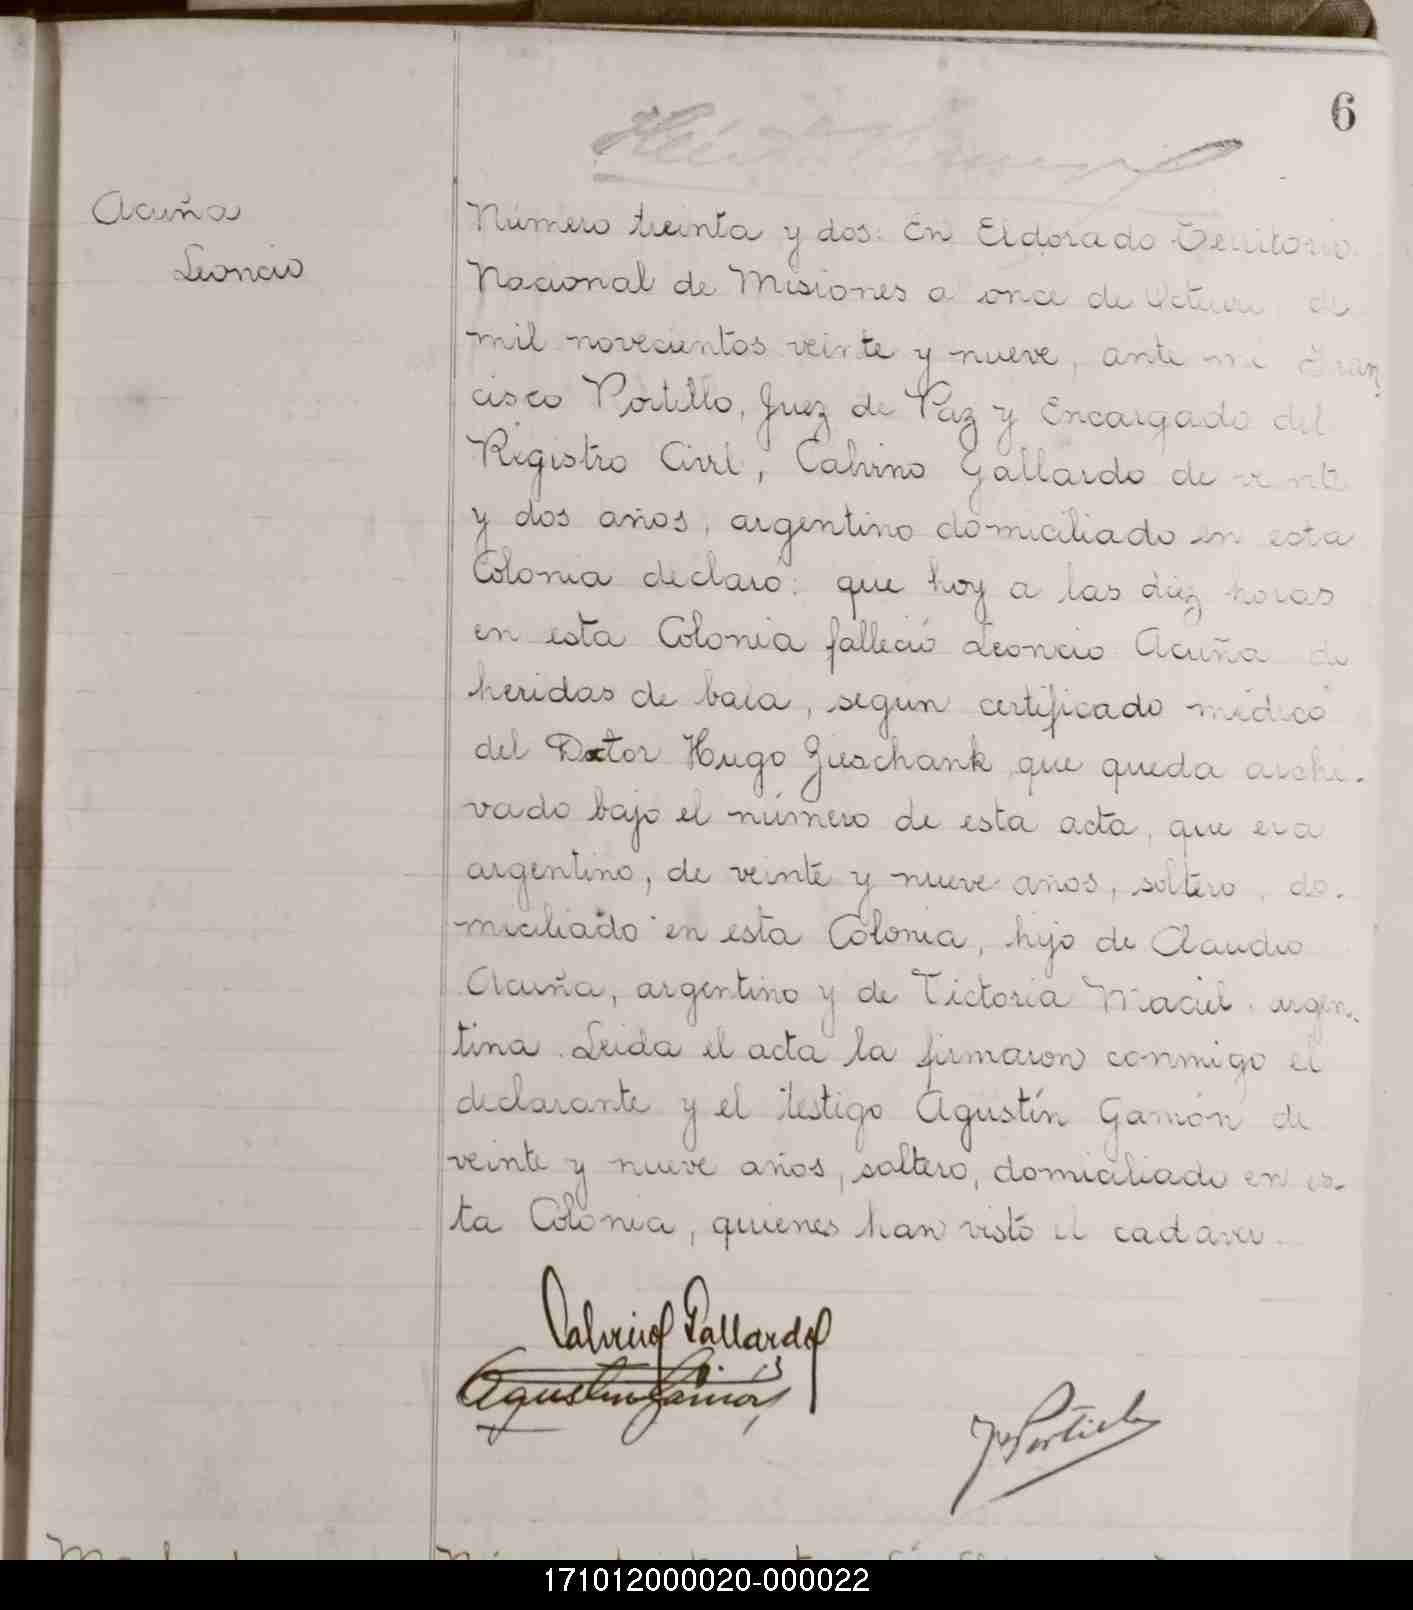 6
Acuña
Leoncio
Número treinta y dos: En Eldorado Territorio
Nacional de Misiones a once de Octubre de
mil novecientos veinte y nueve, ante mi Fran
cisco Portillo, Juez de Paz y Encargado del
Registro Civil, Calvino Gallardo de veinte
y dos años, argentino domiciliado en esta
Colonia declaró: que hoy a las diez horas
en esta Colonia falleció Leoncio Acuña de
heridas de bala, segun certificado médico
del Doctor Hugo que queda archi-
vado bajo el número de esta acta, que era
argentino, de veinte y nueve años, soltero, do-
miciliado en esta Colonia, hijo de Claudio
Acuña, argentino y de Victoria Maciel, argen-
tina. Leida el acta la firmaron conmigo el
declarante y el testigo Agustín Gamón de
veinte y nueve años, soltero, domiciliado en es-
ta Colonia, quienes han visto el cadaver.
Gallardo
Agustin Gamón
171012000020-000022